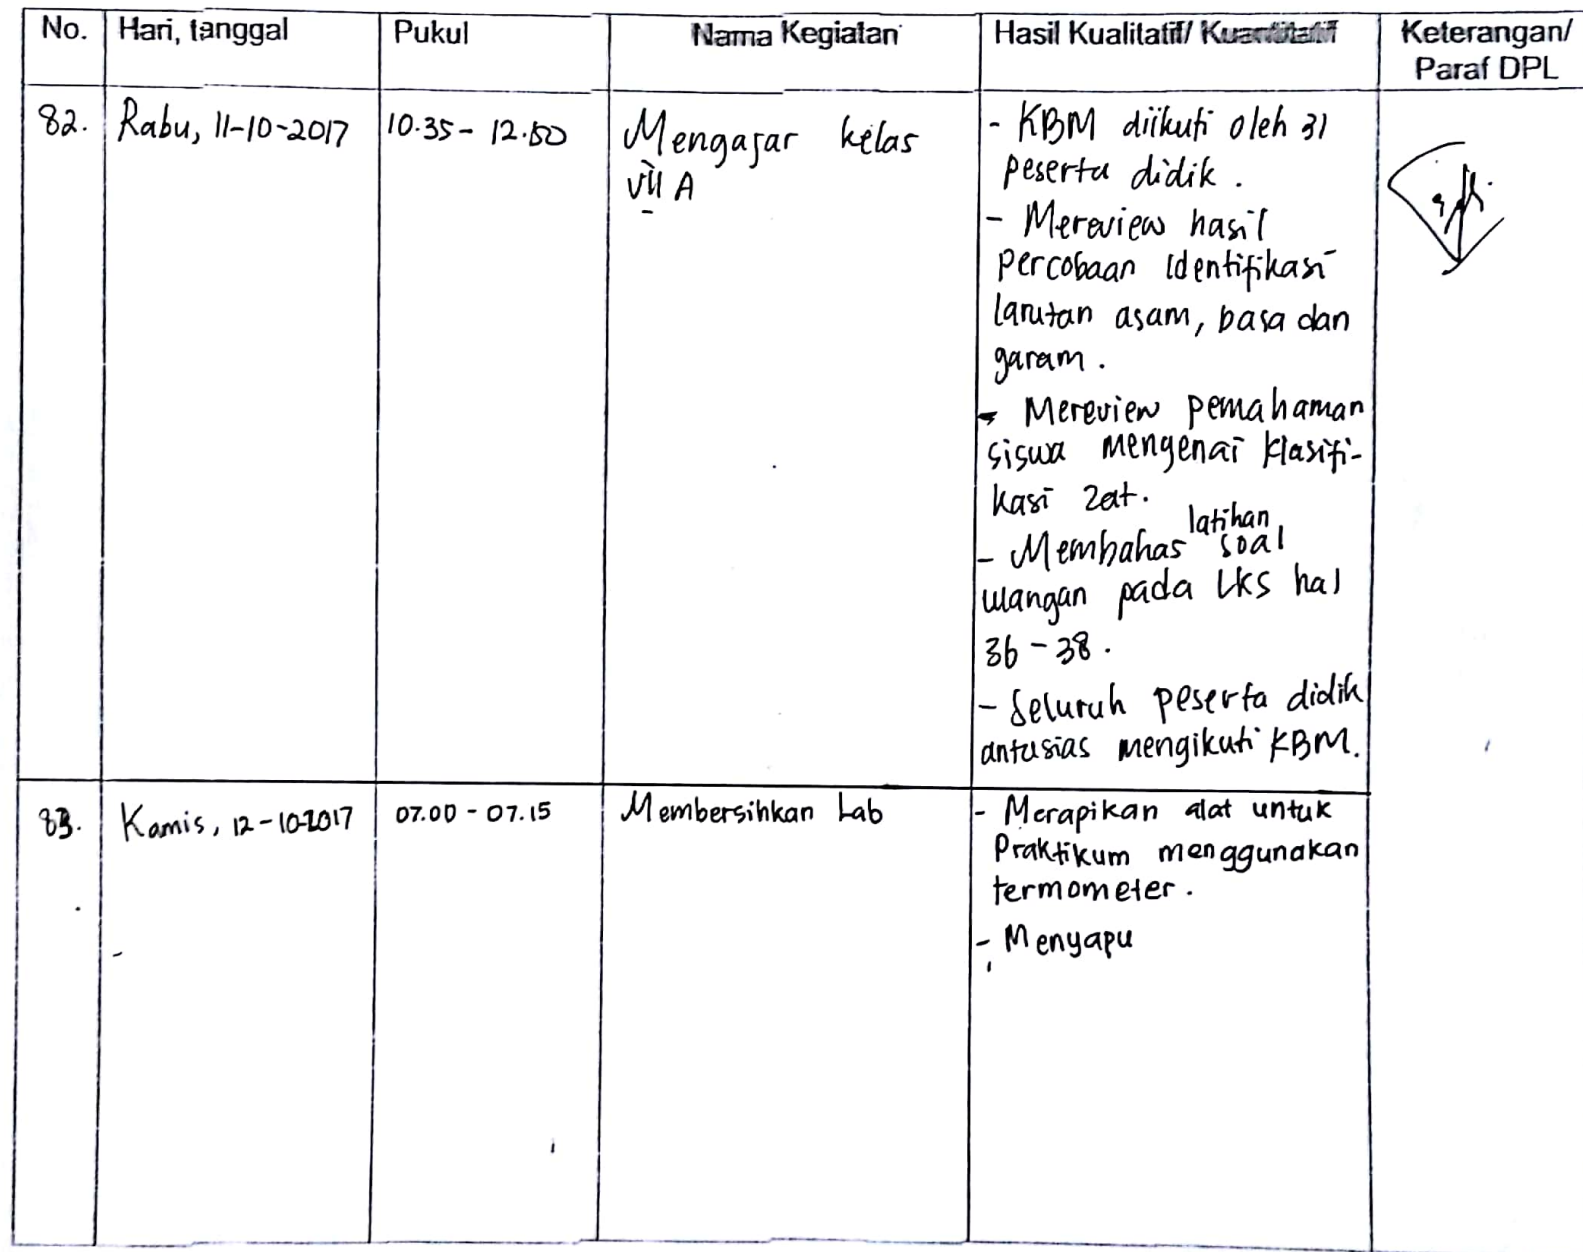 No. Hari, tanggal Pukul Nama Kegiatan Hasil Kualitatif/ Kuantitatif Keterangan/
Paraf DPL
82. Rabu, 11-10-2017 10.35 - 12.50 Mengajar kelas
VII A
- KBM diikuti oleh 31
peserta didik.
- Mereview hasil
percobaan identifikasi
larutan asam, basa dan
garam.
- Mereview pemahaman
siswa mengenai klasifi-
kasi zat.
- Membahas latihan soal
ulangan pada LKS hal
36-38.
- Seluruh peserta didik
antusias mengikuti KBM.
83. Kamis, 12-10-2017 07.00 - 07.15 Membersihkan Lab
- Merapikan alat untuk
Praktikum menggunakan
termometer.
- Menyapu